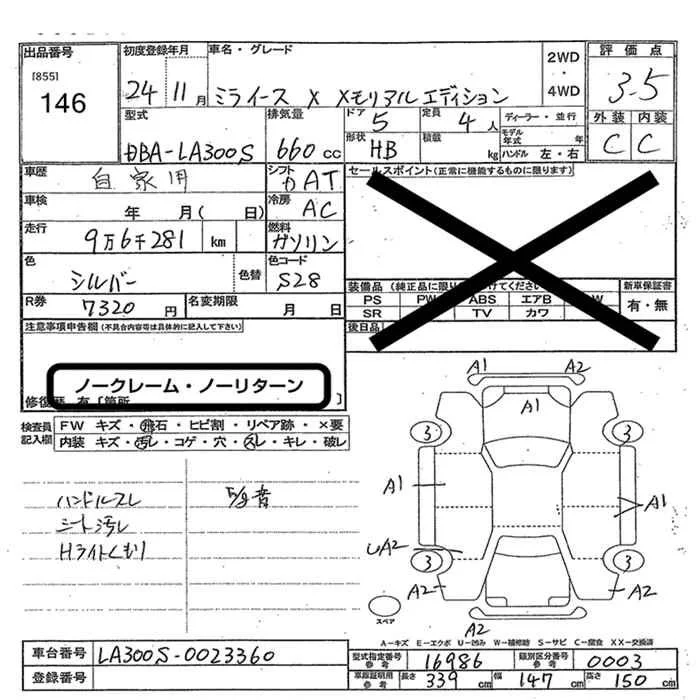 出品番号
[855]
146
初度登録年月
24 11月
車名・グレード
ミライース X メモリアルエディション
2WD
・
4WD
評価点
3.5
型式
DBA-LA300S
排気量
660cc
ドア
5
形状
HB
定員
4人
積載
kg
ディーラー・並行
モデル年式 年
ハンドル 左・右
外装 内装
C C
車歴
自家用
シフト
DAT
セールスポイント(正常に機能するものに限ります)
車検
年 月( 日)
冷房
AC
走行
9万6千281 km
燃料
ガソリン
色
シルバー
色替
色コード
S28
装備品
新車保証書
PS PW ABS エアB
SR TV カワ
有・無
R券
7320円
名変期限
月 日
後日品
注意事項申告欄(不具合内容等は具体的に記入して下さい)
ノークレーム・ノーリターン
検査員記入欄
FW キズ・飛石・ヒビ割・リペア跡・×要
内装 キズ・汚レ・コゲ・穴・スレ・キレ・破レ
ハンドルスレ
シート汚レ
Hライトくもり
A1 A2
A1
3 3
A1 A1
UA2
3 3
A2 A2
A2
スペア
A-キズ E-エクボ U-凹み W-補修跡 S-サビ C-腐食 XX-交換済
車台番号
LA300S-0023360
登録番号
型式指定番号
参考
16986
類別区分番号
参考
0003
車庫証明用
参考
長さ 339cm 幅 147cm 高さ 150cm